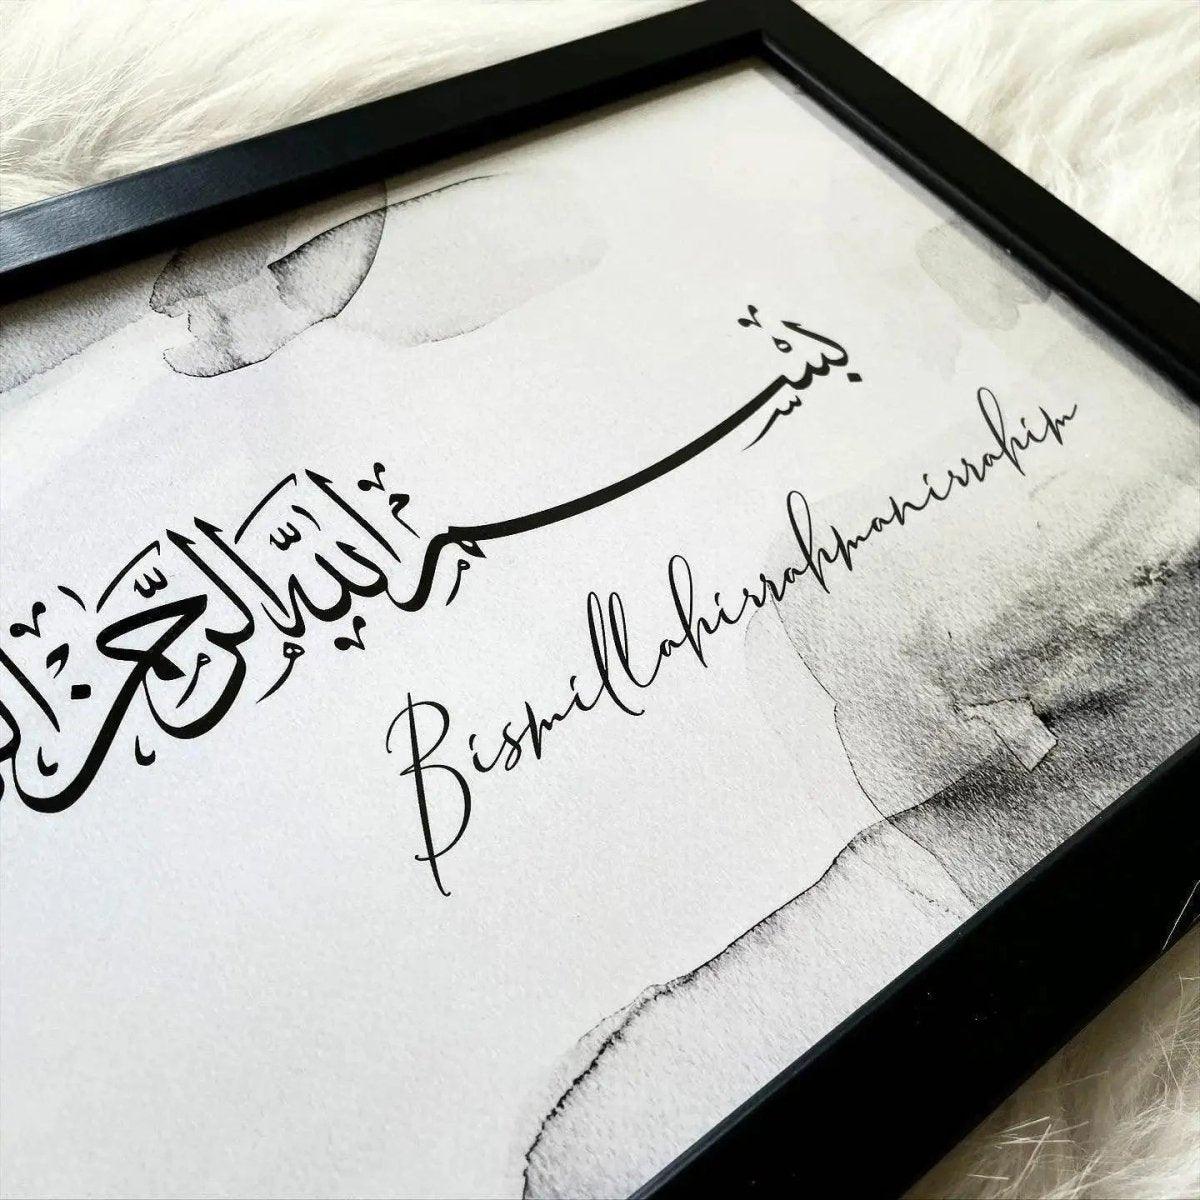 بِسْمِ اللَّهِ الرَّحْمَٰنِ
Bismillahirrahmanirrahim